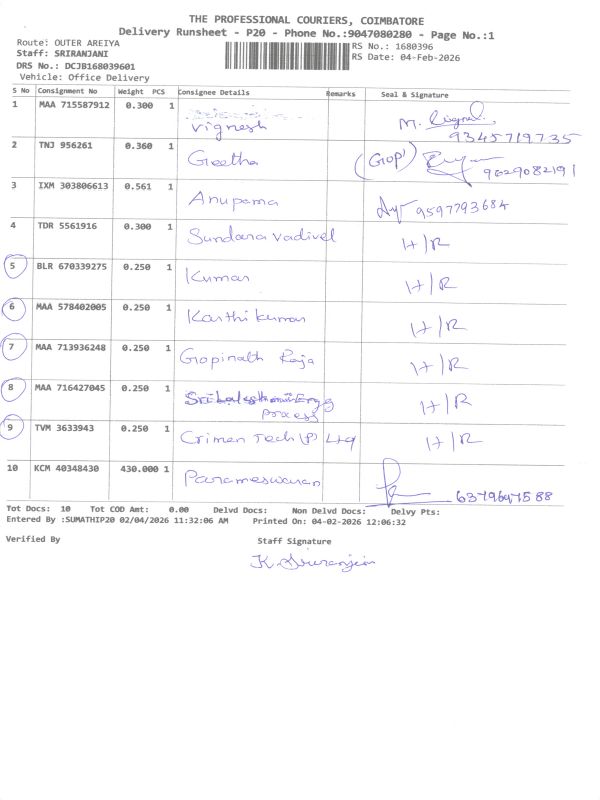 THE PROFESSIONAL COURIERS, COIMBATORE
Delivery Runsheet - P20 - Phone No.:9047080280 - Page No.:1
Route: OUTER AREIYA
Staff: SRIRANJANI
DRS No.: DCJB168039601
Vehicle: Office Delivery
RS No.: 1680396
RS Date: 04-Feb-2026
S No Consignment No Weight PCS Consignee Details Remarks Seal & Signature
1 MAA 715587912 0.300 1 Vignesh M. 9345719735
2 TNJ 956261 0.360 1 Geetha (GOP) 9629082191
3 IXM 303806613 0.561 1 Anupama 9597793684
4 TDR 5561916 0.300 1 Sundara vadivel H/R
5 BLR 670339275 0.250 1 Kumar H/R
6 MAA 578402005 0.250 1 Karthi kumar H/R
7 MAA 713936248 0.250 1 Gopinath Raja H/R
8 MAA 716427045 0.250 1 process H/R
9 TVM 3633943 0.250 1 Crimen Tech (P) Ltd H/R
10 KCM 40348430 430.000 1 Parameswaran
Tot Docs: 10 Tot COD Amt: 0.00 Delvd Docs: Non Delvd Docs: Delvy Pts:
Entered By :SUMATHIP20 02/04/2026 11:32:06 AM Printed On: 04-02-2026 12:06:32
Verified By Staff Signature